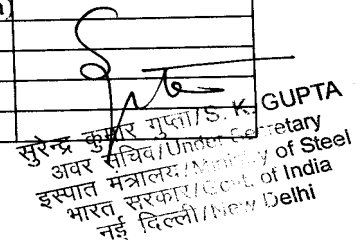 a)
सुरेन्द्र कुमार गुप्ता/S. K. GUPTA
अवर सचिव/Under Secretary
इस्पात मंत्रालय/Ministry of Steel
भारत सरकार/Govt. of India
नई दिल्ली/New Delhi